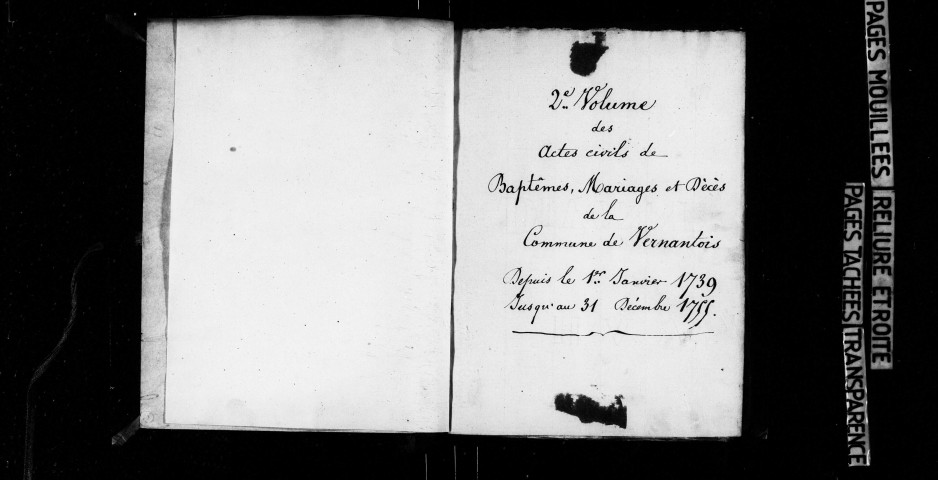 2e Volume
des
Actes civils de
Baptêmes, Mariages et Décès
de la
Commune de Vernantois
Depuis le 1er Janvier 1739
Jusqu'au 31 Décembre 1755.
PAGES MOUILLEES
RELIURE ETROITE
PAGES TACHEES
TRANSPARENCE